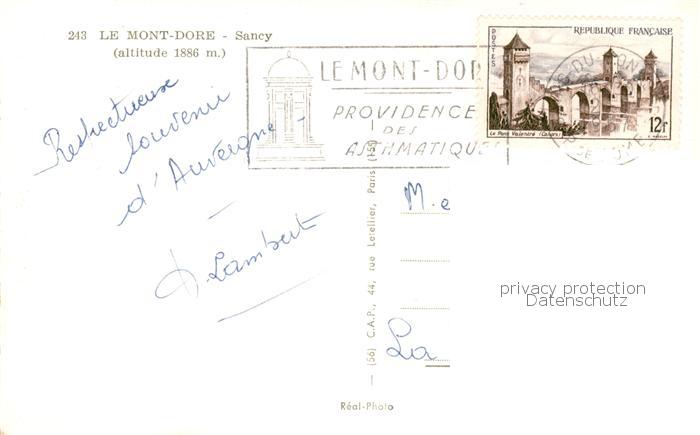 243 LE MONT-DORE - Sancy
(altitude 1886 m.)
Respectueux
souvenir
d'Auvergne -
D Lambert
LE MONT-DOR
PROVIDENCE
DES
ASTHMATIQUES
POSTES
REPUBLIQUE FRANÇAISE
Le Pont Valentré (Cahors)
12f
M. e
La
(56) C.A.P., 44, rue Letellier, Paris (15e)
Réal-Photo
privacy protection
Datenschutz